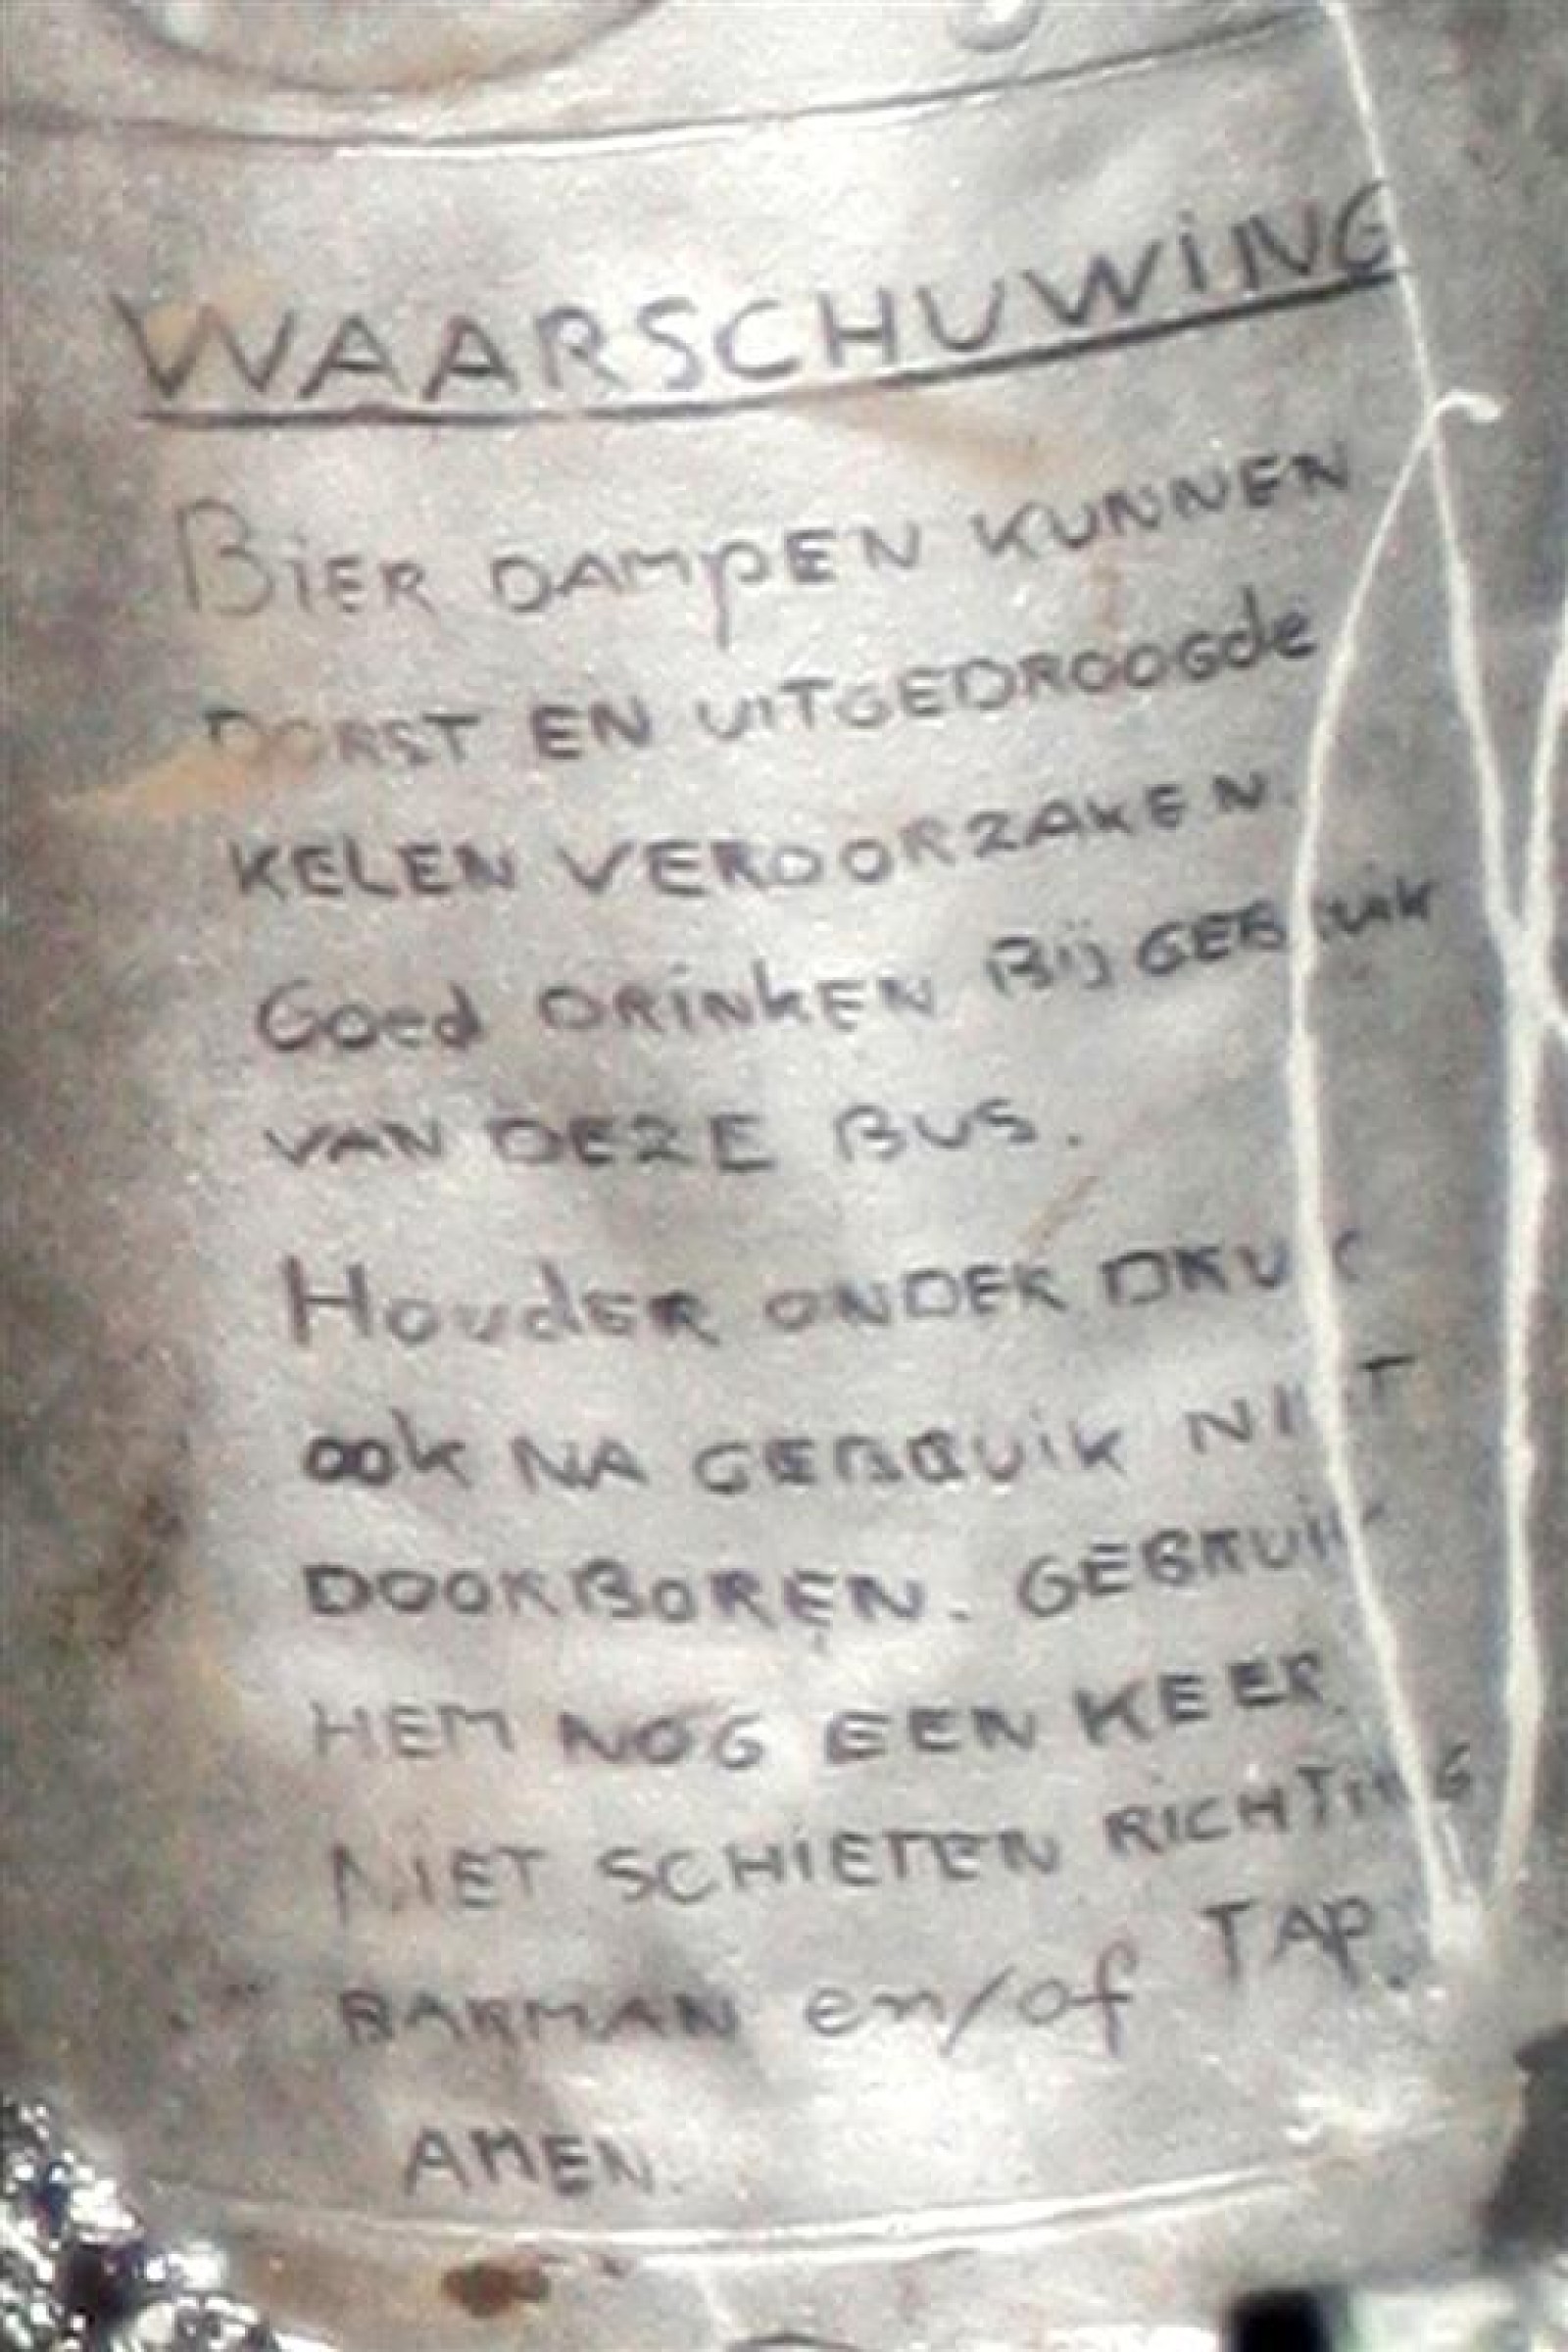 WAARSCHUWING
BiER DAMPEN KUNNEN
DORST EN UITGEDROOGde
KELEN VEROORZAKEN.
Goed DRINKEN Bij GEBRUIK
VAN DEZE BUS.
HoudER ONDER DRUK
ook NA GEBRUIK NIET
DOORBOREN. GEBRUIK
HEM NOG EEN KEER
NIET SCHIETEN RICHTING
BARMAN en/of TAP.
AMEN.